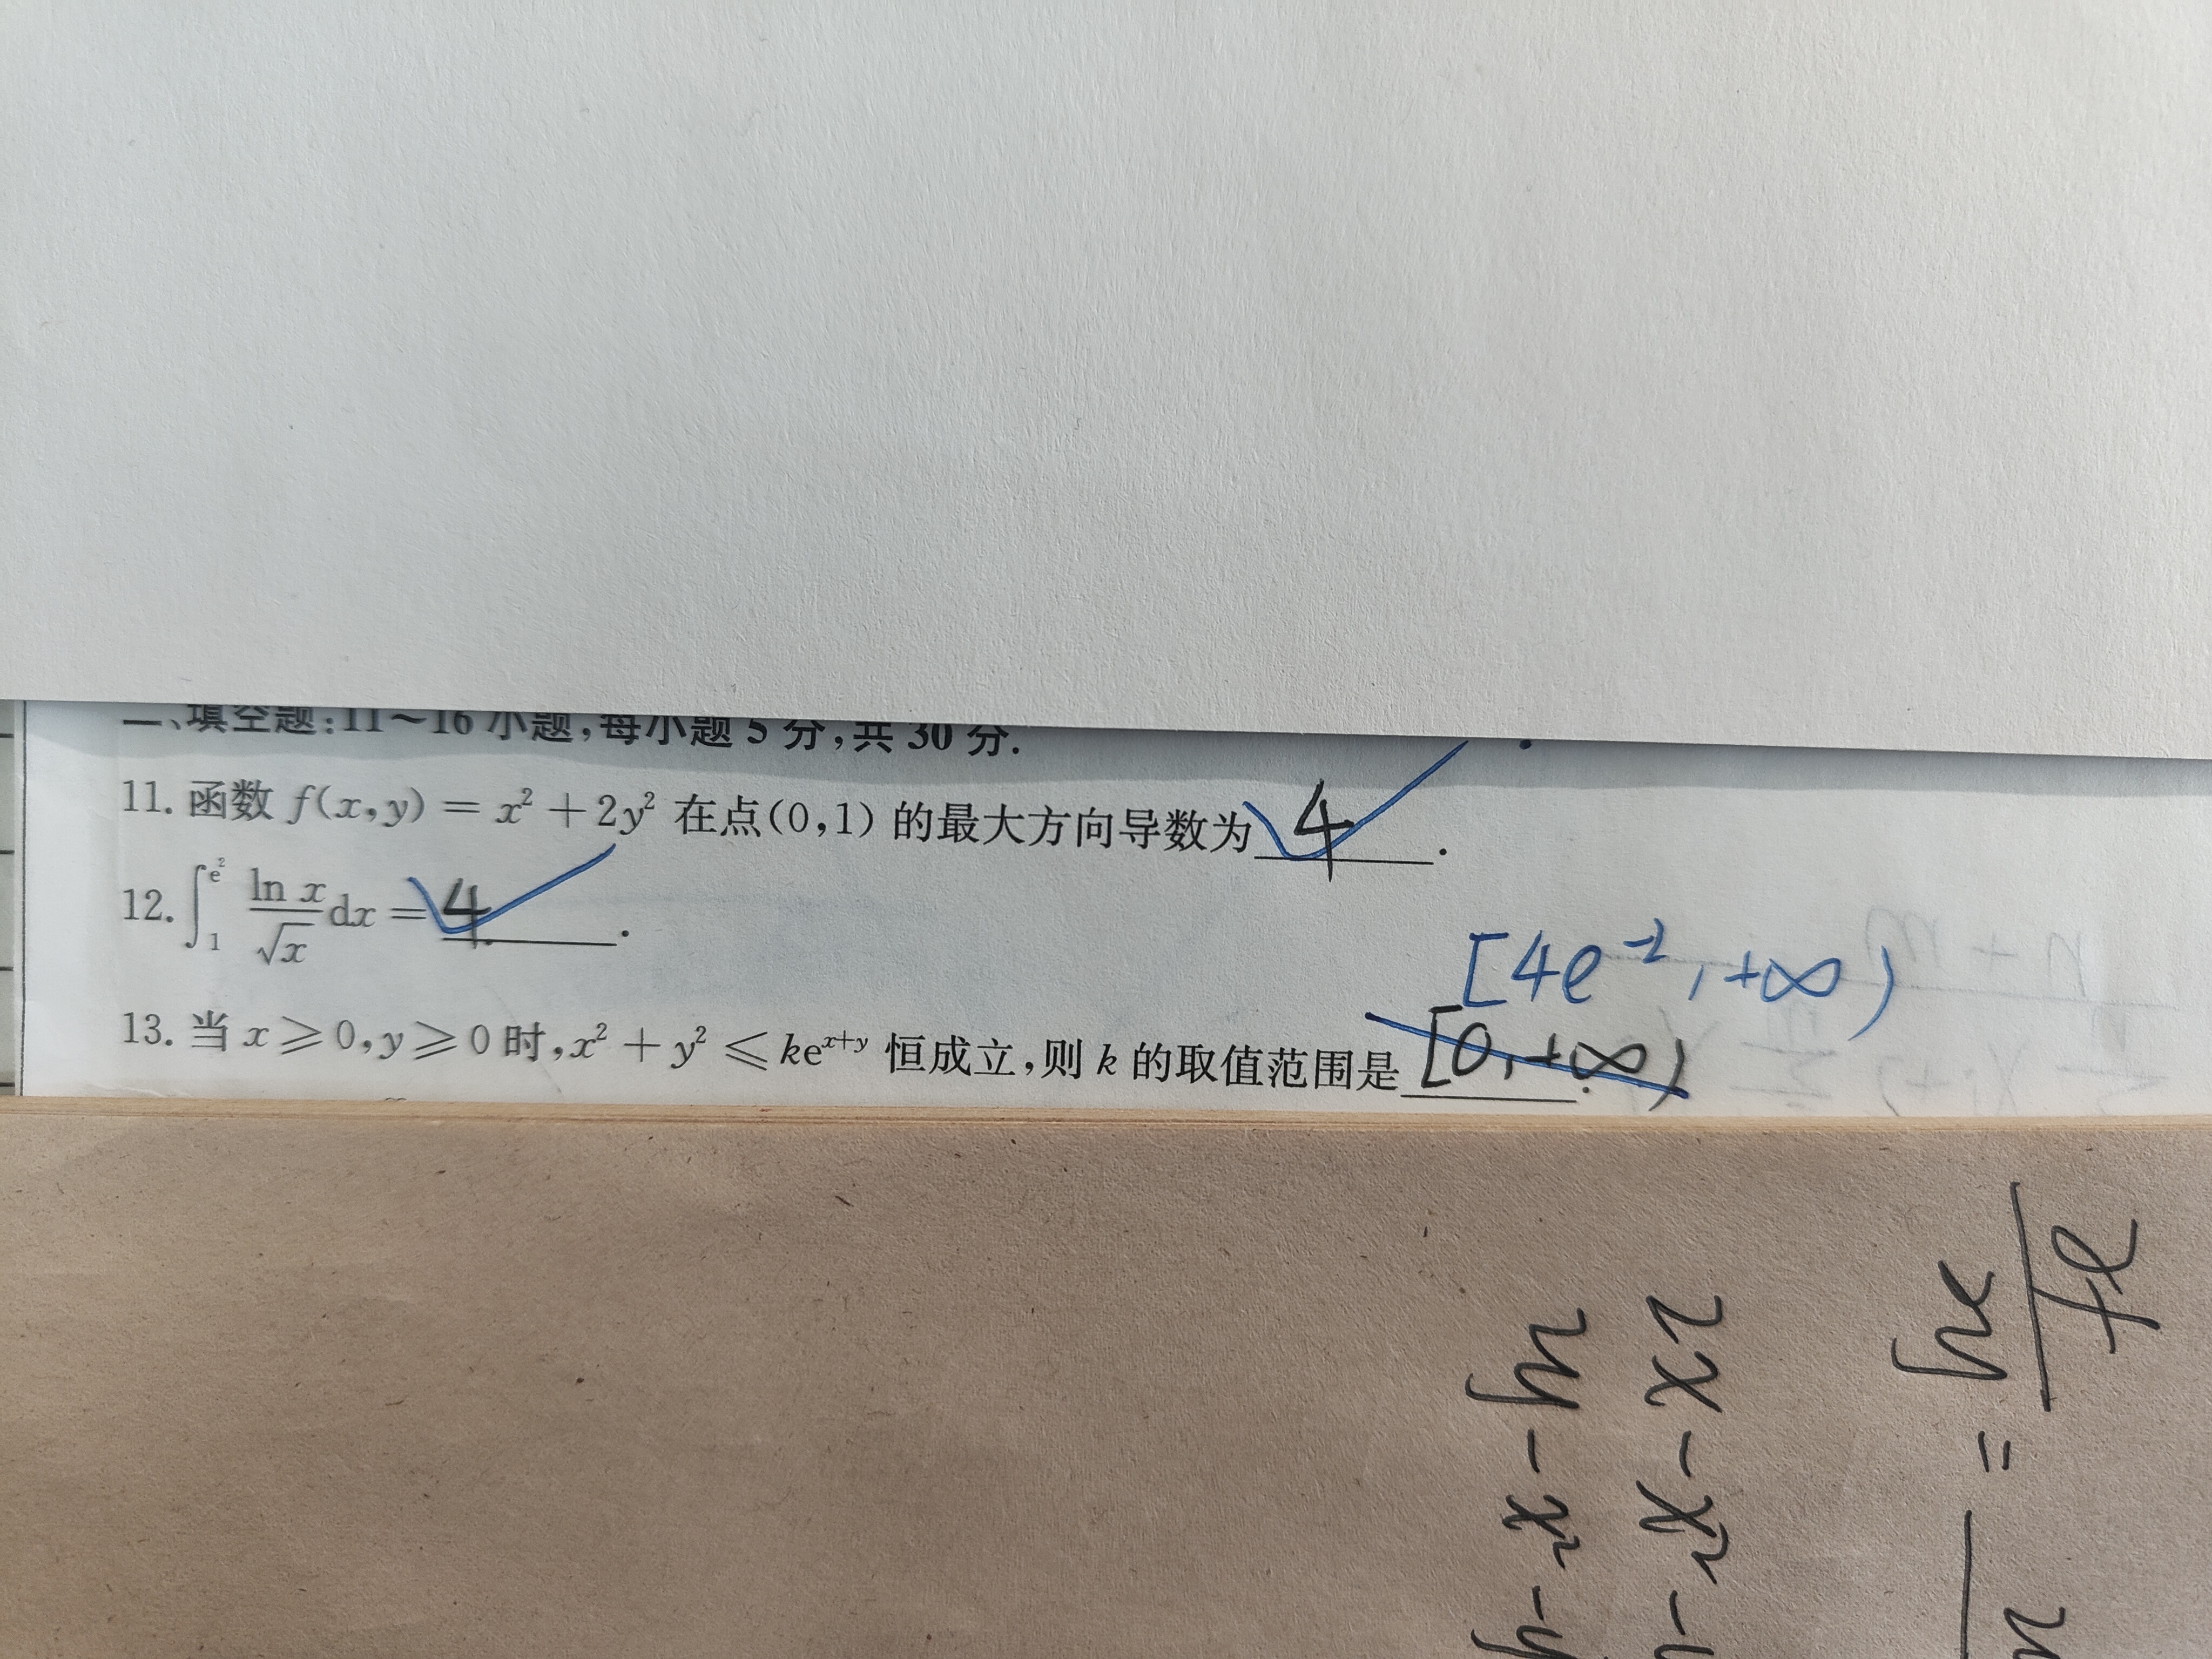 二、填空题:11～16 小题,每小题 5 分,共 30 分.
11. 函数 f(x,y) = x² + 2y² 在点(0,1) 的最大方向导数为 4 .
12. ∫₁^{e²} ln x/√x dx = 4 .
[4e⁻², +∞)
13. 当 x ⩾ 0, y ⩾ 0 时, x² + y² ⩽ ke^{x+y} 恒成立,则 k 的取值范围是 [0, +∞) .
xy =
2x - x² -
2y - x² - y